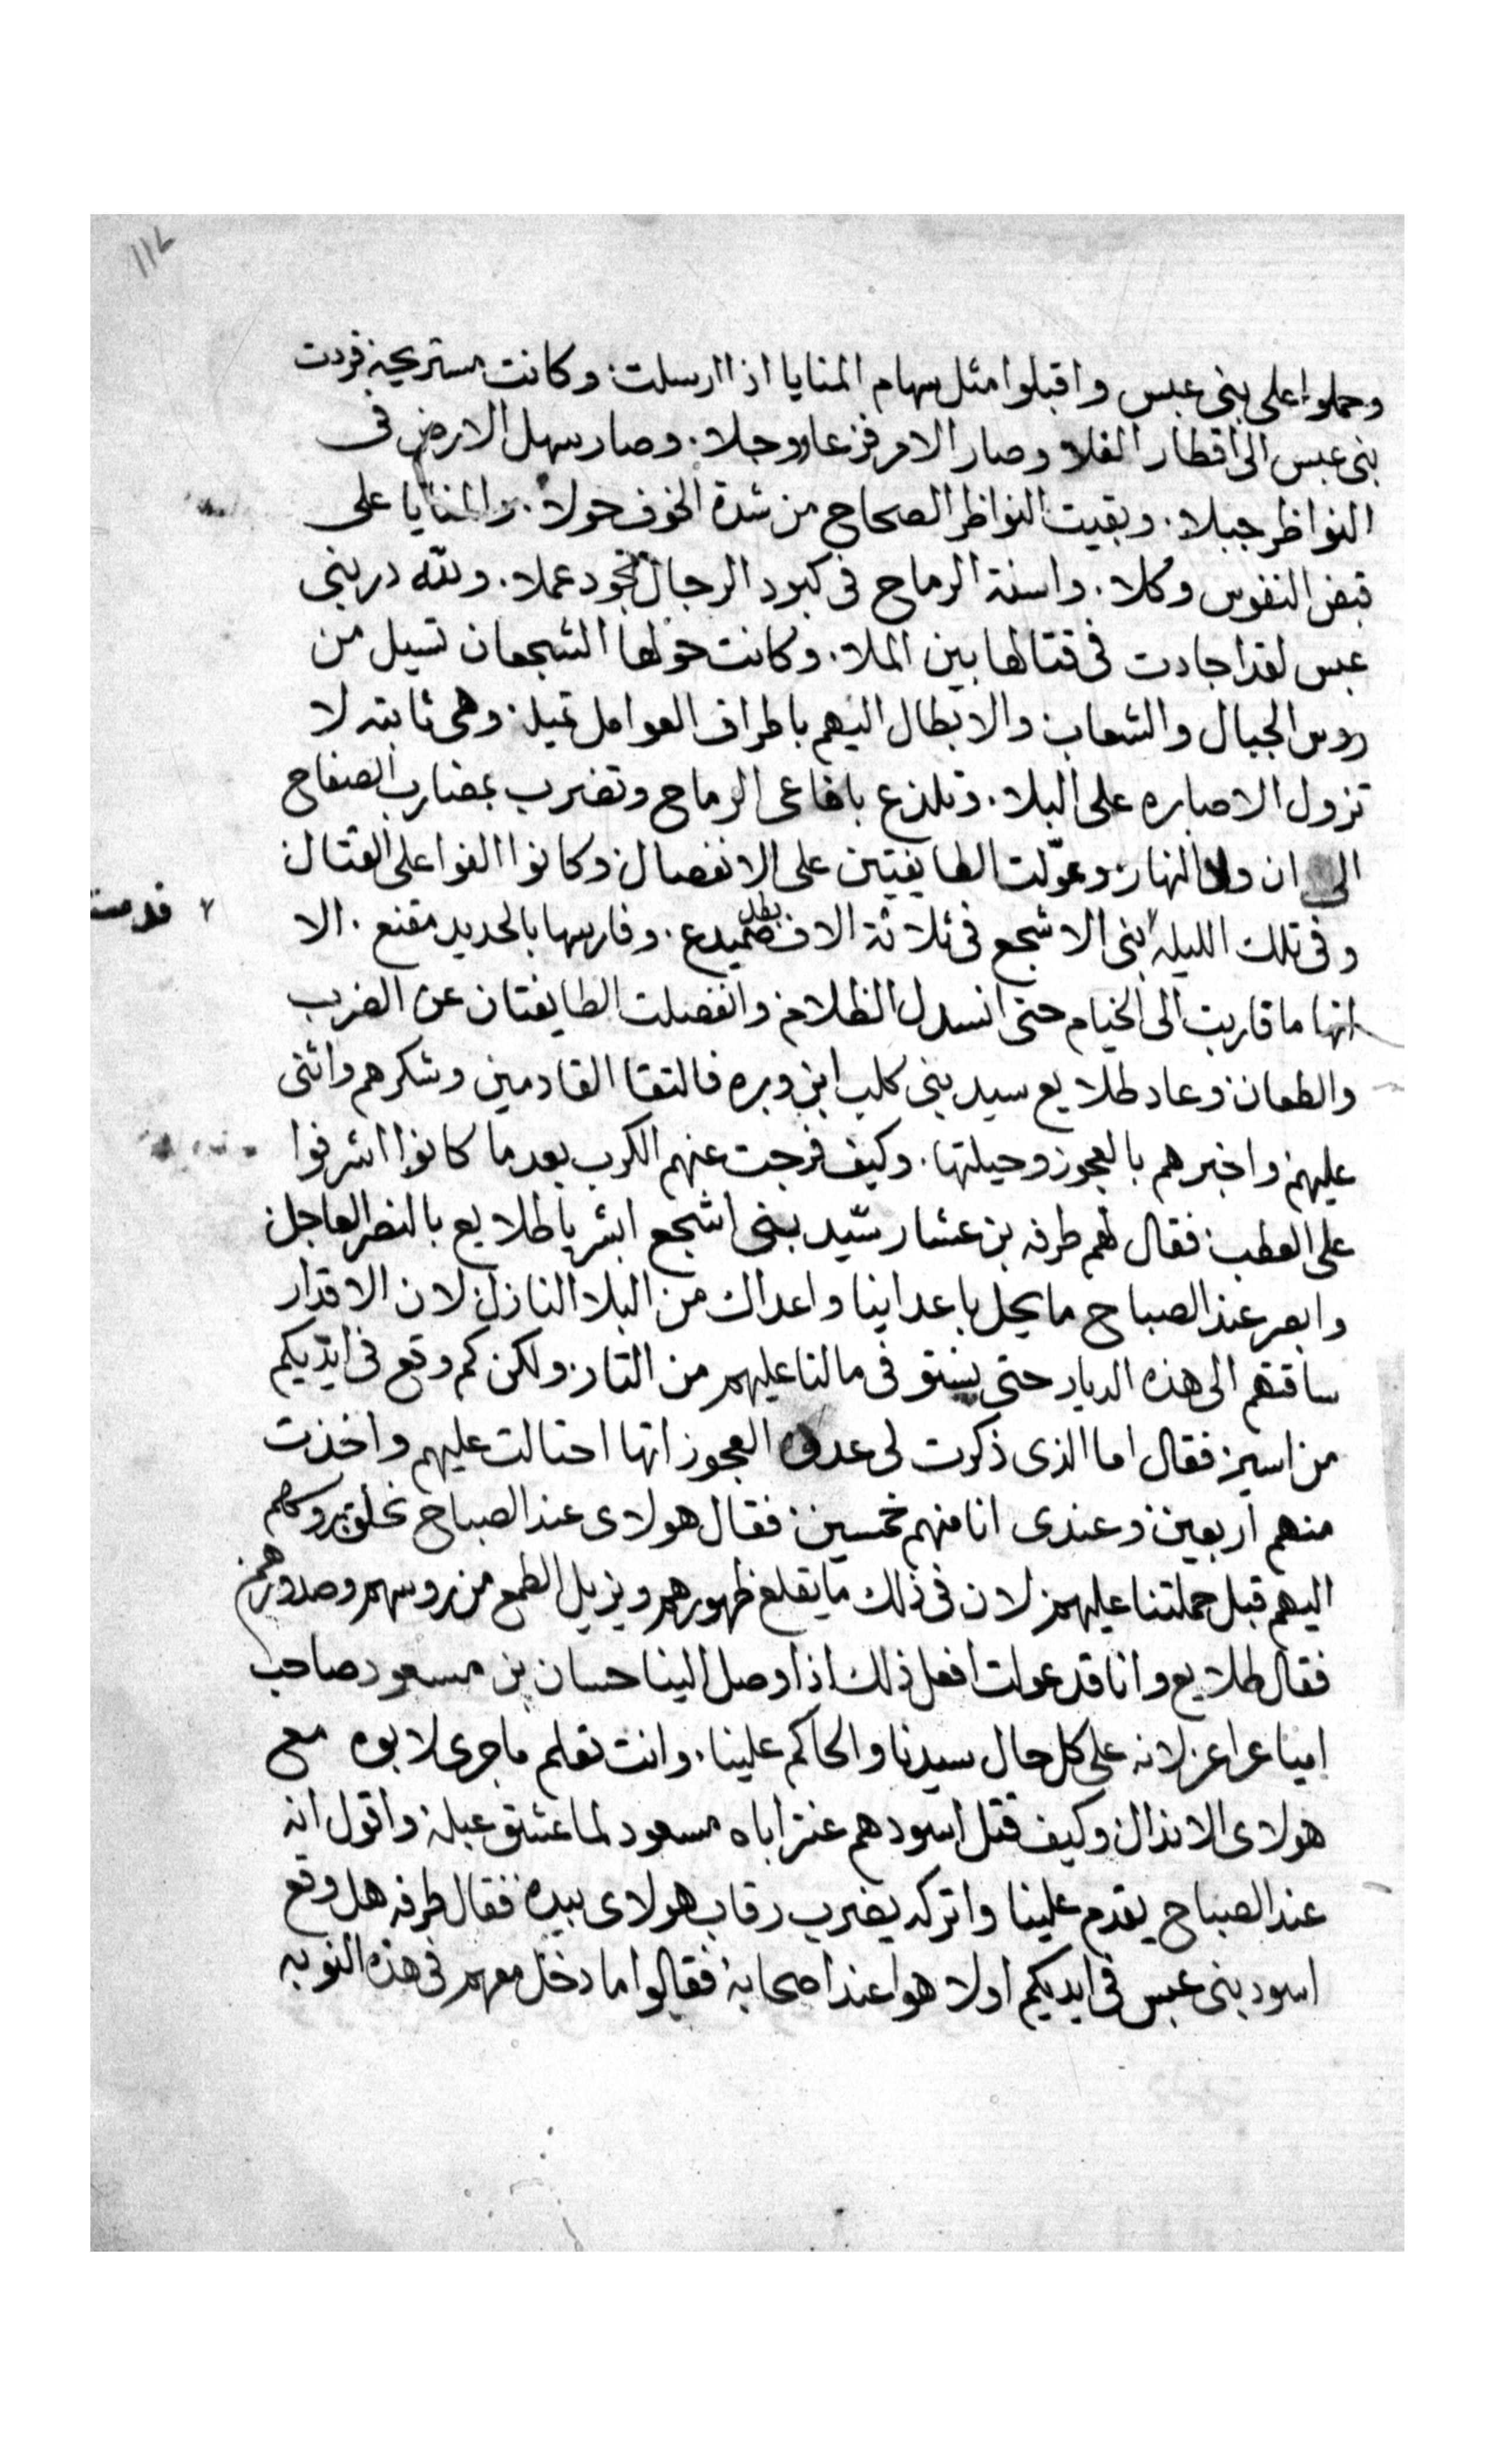 ١١٤
وحملوا على بنى عبس واقبلوا مثل سهام المنايا اذا ارسلت. وكانت مستريحه فردت
بنى عبس الى اقطار الفلا وصار الامر فزعا ووجلا. وصار سهل الارض فى
النواظر جبلا. وبقيت النواظر الصحاح من شدة الخوف حولا. والمنايا على
قبض النفوس وكلا. واسنة الرماح فى كبود الرجال تجود عملا. ولله در بنى
عبس لقد اجادت فى قتالها بين الملا. وكانت حولها الشجعان تسيل من
روس الجبال والشعاب والابطال اليهم باطراف العوامل تميل. وهى ثابته لا
تزول الا صابره على البلا. وتلذع بافاعى الرماح وتضرب بمضارب الصفاح
الى ان ولا النهار. وعوّلت الطايفتين على الانفصال. وكانوا الفوا على القتال
وفى تلك الليله بنى الاشجع فى ثلاثة الاف بطل صميدع. وفارسها بالحديد مقنع. الا
قدمت
انها ما قاربت الى الخيام حتى انسدل الظلام. وانفصلت الطايفتان عن الضرب
والطعان. وعاد طلايع سيد بنى كلب ابن وبره فالتقا القادمين وشكرهم واثنى
عليهم. واخبرهم بالعجوز وحيلتها. وكيف فرجت عنهم الكرب بعد ما كانوا اشرفوا
على العطب. فقال لهم طرفه بن عشار سيّد بنى اشجع ابشر يا طلايع بالنصر العاجل
وابصر عند الصباح ما يحل باعداينا واعداك من البلا النازل. لان الاقدار
ساقتهم الى هذه الديار حتى نستوفى مالنا عليهم من التار. ولكن كم وقع فى ايديكم
من اسير. فقال اما الذى ذكرت لى العجوز انها احتالت عليهم واخذت
منهم اربعين. وعندى انا منهم خمسين. فقال هولاى عند الصباح بروكلهم
اليهم قبل حملتنا عليهم. لان فى ذلك ما يقلع ظهورهم ويزيل الطمع من روسهم وصدورهم.
فقال طلايع وانا قد عولت افعل ذلك اذا وصل الينا حسان بن مسعود صاحب
عراعر لانه على كل حال سيدنا والحاكم علينا. وانت تعلم ما جرى لابوه مع
هولاى الاندال. وكيف قتل اسودهم عنتر اباه مسعود لما عشق عبله. واقول انه
عند الصباح يقدم علينا واتركه يضرب رقاب هولاى بيده. فقال طرفه هل وقع
اسود بنى عبس فى ايديكم اولا هوا عند اصحابه. فقالوا ما دخل معهم فى هذه النوبه